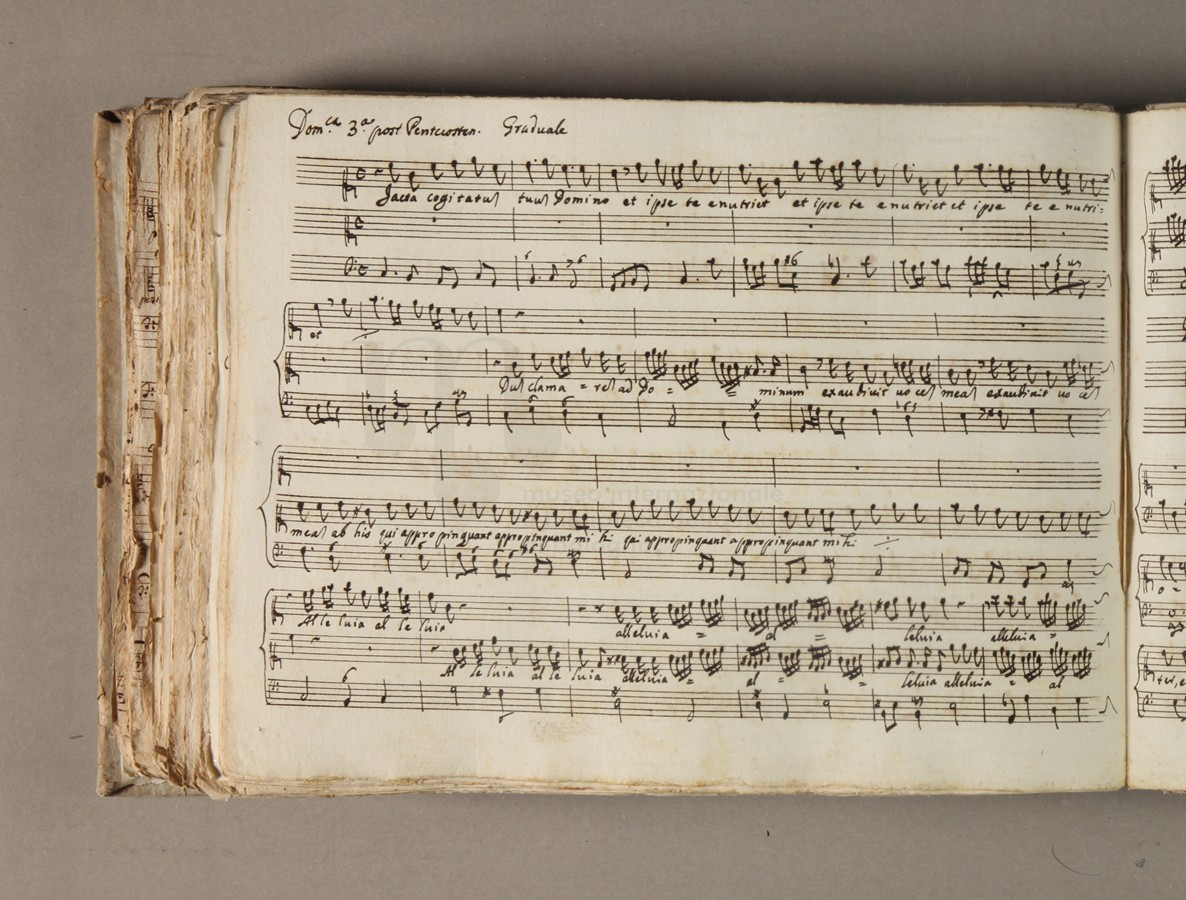 Dom.ca 3.a post Pentecosten. Graduale
Jacta cogitatus tuus Domino et ipse te enutriet et ipse te enutriet et ipse te e nutri=
et
Dus clama = res ad Do = = minum exaudivit vo ces meas exaudivit vo ces
meas ab his qui appro pinquant appropinquant mi hi qui appropinquant appropinquant mihi
Al le luia al le luia alleluia = al = leluia alleluia =
Al le luia al le luia alleluia = al = leluia alleluia = al
museo internazionale